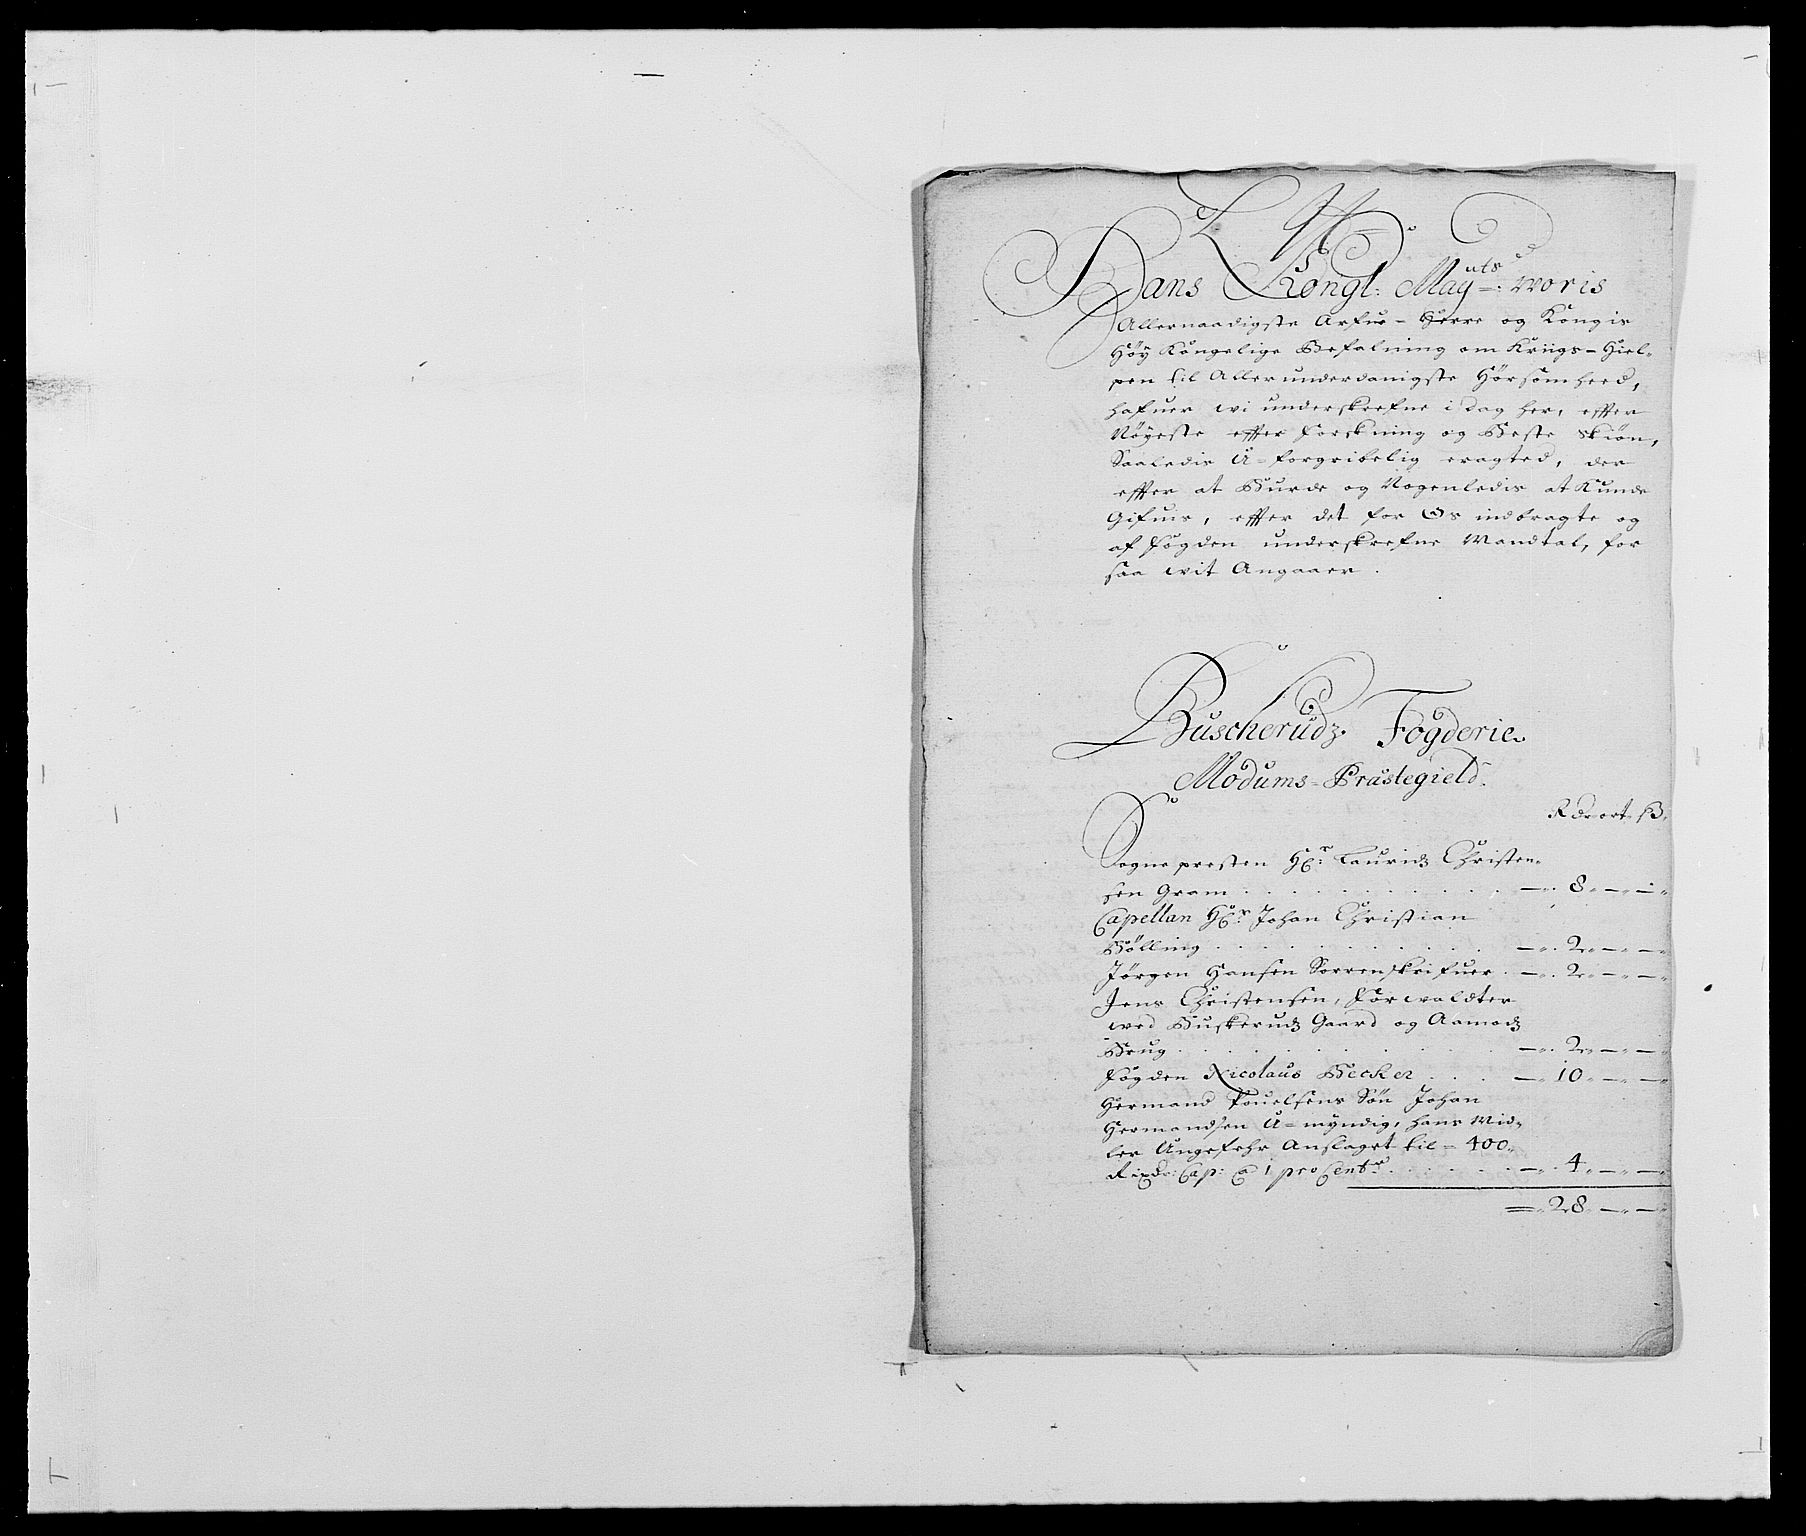 Hans Kongl: May:uts woris
Allernaadigste Arfue-Herre og Kongis
Høy Kongelige Befalning om Kriigs-Hiel-
pen til Allerunderdanigste Hørsomheed,
hafuer wi underskrefne i dag her, effter
Nøyeste effter forskning og Beste Skiøn,
Saaledis U-forgribelig eragted, der
effter at Burde og Nogenledis at Kunde
Gifuis, effter det for Os indbragte og
af Fogden underskrefne Mandtal, for
saa wit Angaaer.
Buscherudz Fogderie
Modums-Præstegield.
Rdr ort ß
Sognepresten Hr: Lauridz Christen-
sen Gram . . . 8 - -
Capellan Hr: Johan Christian
Bølling . . . 2 - -
Jørgen Hansen Sorrenskrifuer . 2 - -
Jens Christensen, Forwaldter
wed Buskerudz Gaard og Aamodz
Brug . . . 2 - -
Fogden Nicolaus Becker . . . 10 - -
Hermand Pouelsens Søn Johan
Hermandsen U-myndig, hans Mid-
ler Ungefehr Anslaget til - 400
Rixdr: Cap: a 1 pro Cento . . . 4 - -
28 - -